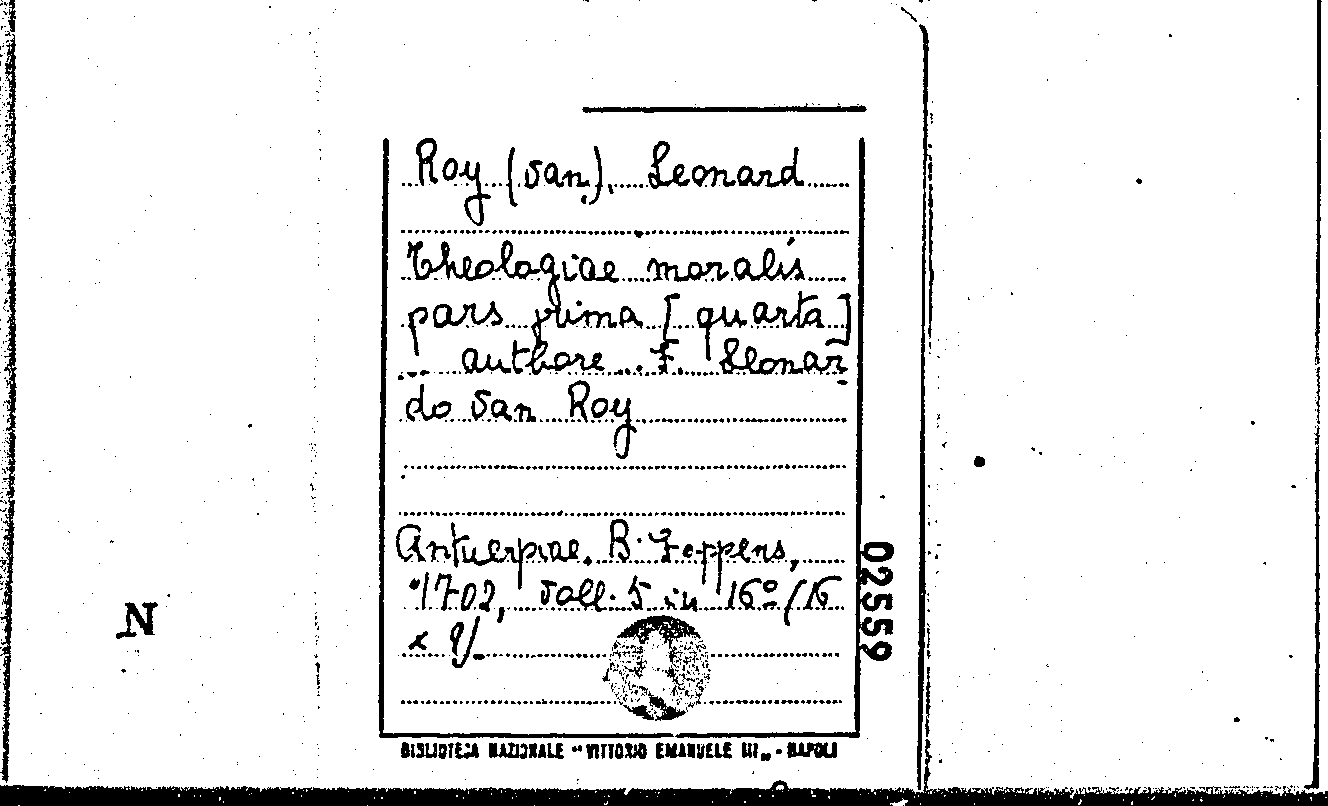 Roy (van), Leonard
Theologiae moralis
pars prima [quarta]
... authore ... F. Leonar
do van Roy
Antuerpiae, B. Foppens,
1702, voll. 5 in 16º (16
x 9).
02559
N
BIBLIOTECA NAZIONALE "VITTORIO EMANUELE III„ - NAPOLI